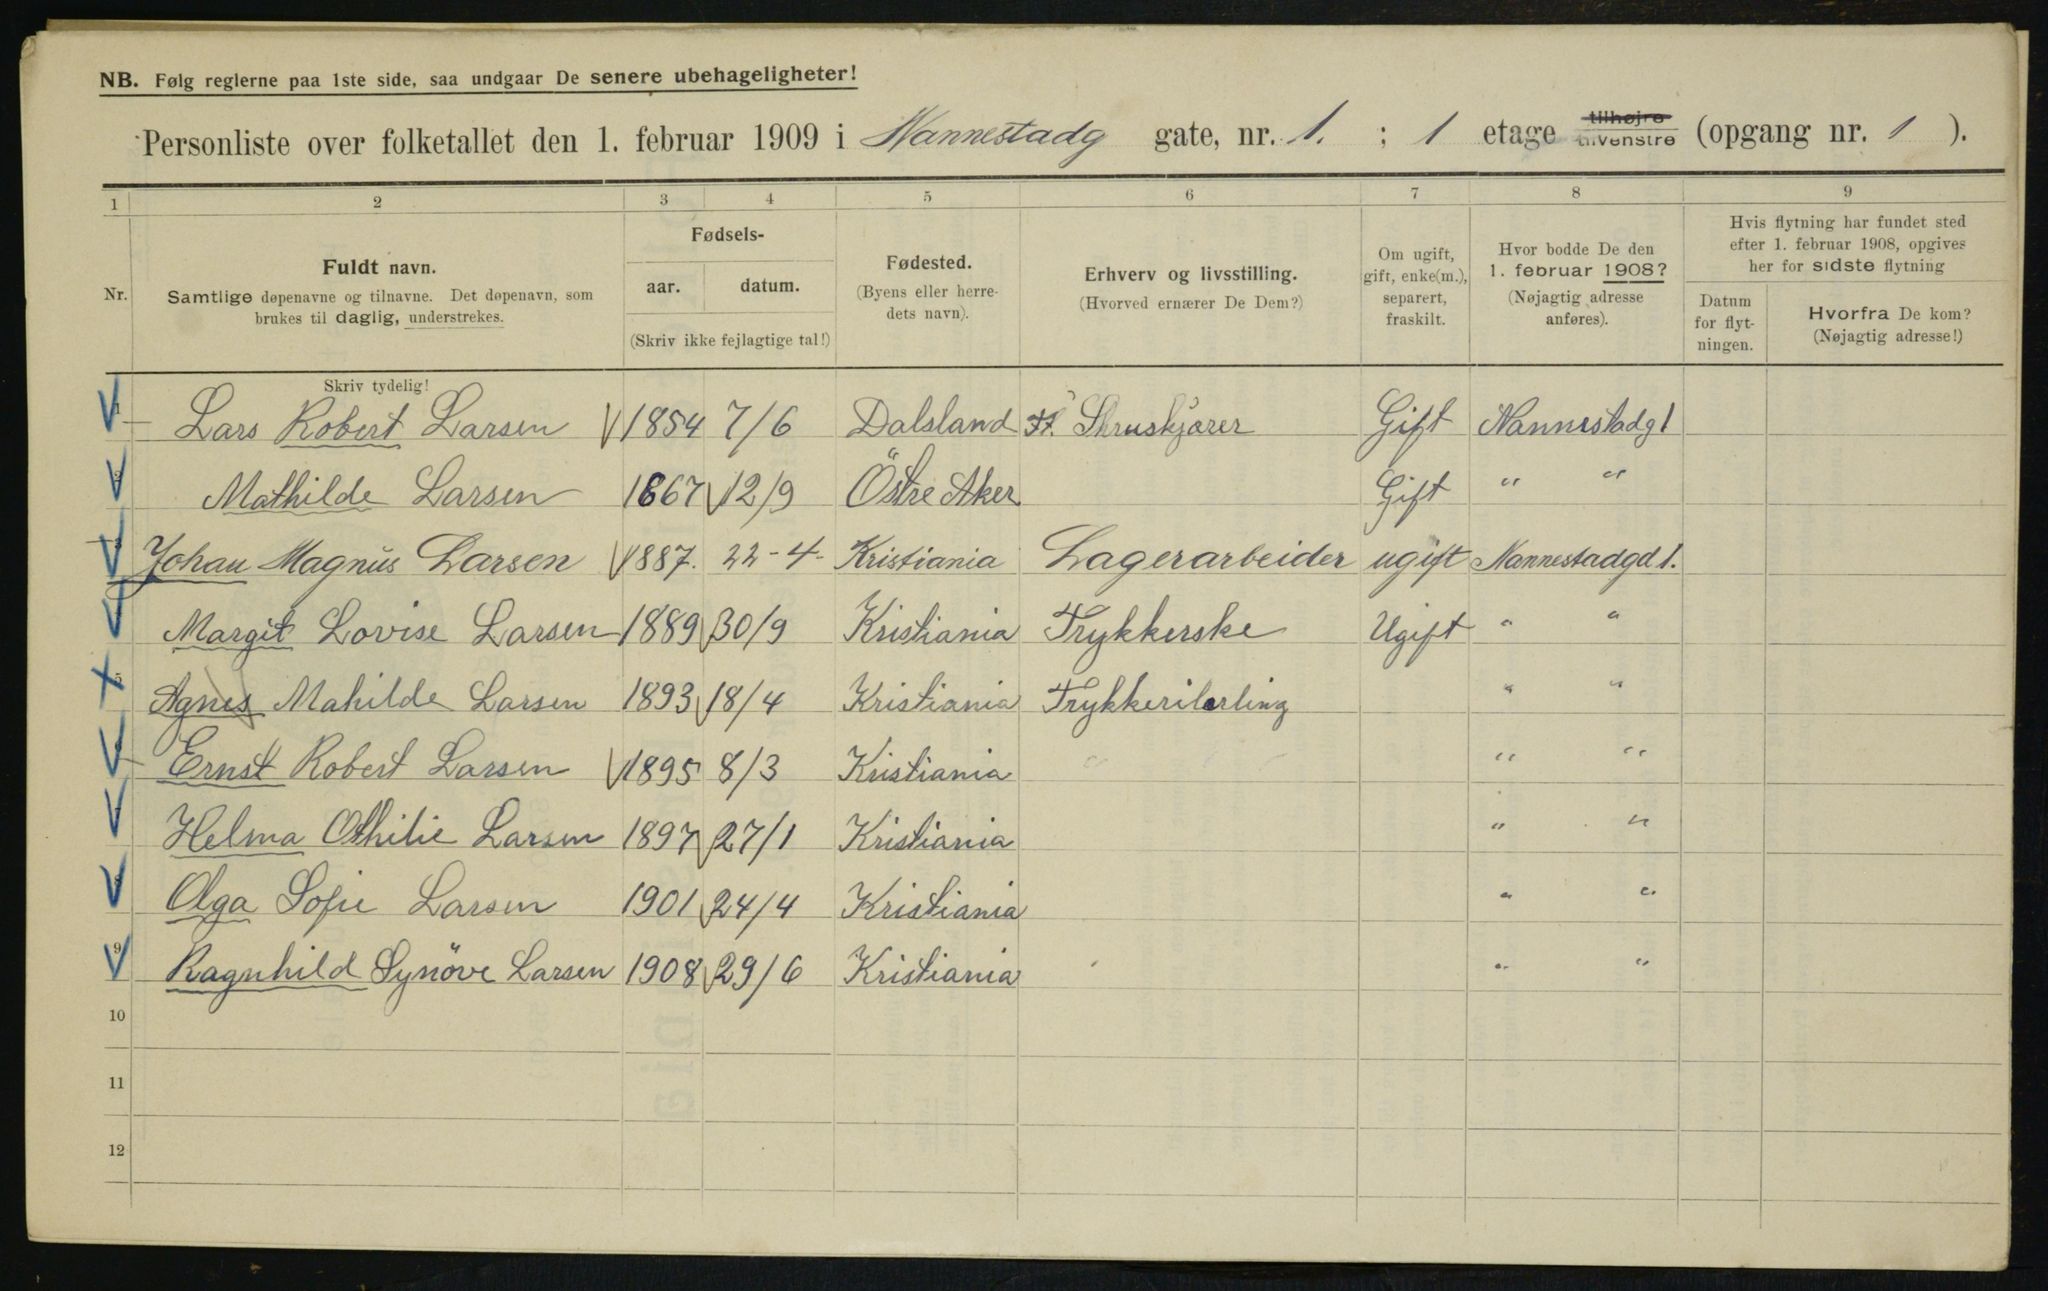 NB. Følg reglerne paa 1ste side, saa undgaar De senere ubehageligheter!
Personliste over folketallet den 1. februar 1909 i Nannestadg gate, nr. 1. ; 1 etage tilhøjre tilvenstre (opgang nr. 1 ).
1 2 3 4 5 6 7 8 9
Nr.
Fuldt navn.
Samtlige døpenavne og tilnavne. Det døpenavn, som
brukes til daglig, understrekes.
Fødsels-
aar. datum.
(Skriv ikke fejlagtige tal!)
Fødested.
(Byens eller herre-
dets navn).
Erhverv og livsstilling.
(Hvorved ernærer De Dem?)
Om ugift,
gift, enke(m.),
separert,
fraskilt.
Hvor bodde De den
1. februar 1908?
(Nøjagtig adresse
anføres).
Hvis flytning har fundet sted
efter 1. februar 1908, opgives
her for sidste flytning
Datum
for flyt-
ningen.
Hvorfra De kom?
(Nøjagtig adresse!)
Skriv tydelig!
1 Lars Robert Larsen 1854 7/6 Dalsland Skruskjærer Gift Nannestadg 1
2 Mathilde Larsen 1867 12/9 Östre Aker Gift " "
3 Johan Magnus Larsen 1887. 22-4- Kristiania Lagerarbeider ugift Nannestadgd 1.
Margit Lovise Larsen 1889 30/9 Kristiania Trykkerske Ugift " "
5 Agnes Mahilde Larsen 1893 18/4 Kristiania Trykkerilærling " "
Ernst Robert Larsen 1895 8/3 Kristiania " "
7 Helma Othilie Larsen 1897 27/1 Kristiania " "
8 Olga Sofie Larsen 1901 24/4 Kristiania " "
9 Ragnhild Synöve Larsen 1908 29/6 Kristiania " "
10
11
12